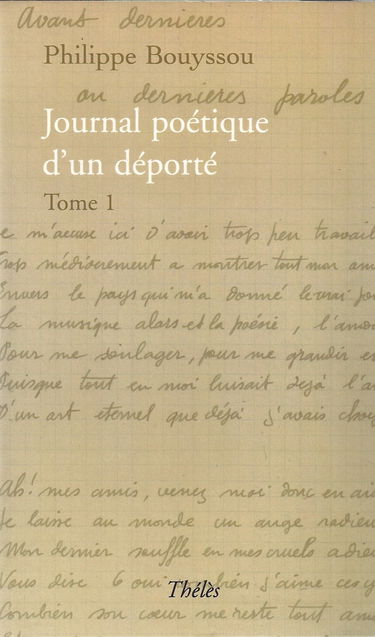 Avant dernieres
Philippe Bouyssou
ou dernieres paroles
Journal poétique
d'un déporté
Tome 1
Je m'accuse ici d'avoir trop peu travail
Trop médiocrement a montrer tout mon am
Envers le pays qui m'a donné le vrai po
La musique alors et la poésie, l'amo
Pour me soulager, pour me grandir e
Puisque tout en moi luisait dejà l'a
D'un art eternel que déjà j'avais choi
Ah! mes amis, venez moi donc en ai
Je laisse au monde un ange radieu
Mon dernier souffle en mes cruels adieu
Vous dire 6 oui combien j'aime ces y
Thélès
Combien son cœur me reste tout am